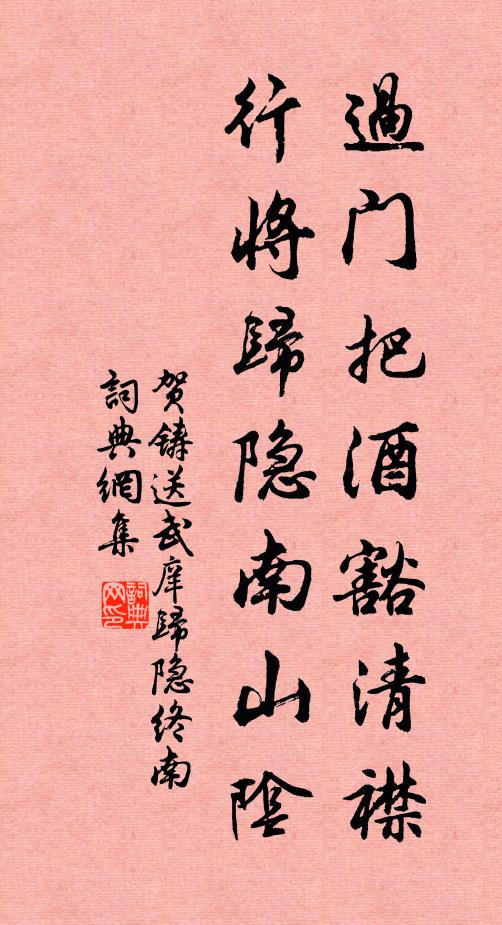 過门把酒豁清襟
行将歸隐南山陰
贺铸送武庠歸隐终南
詞典網集
詞典网印